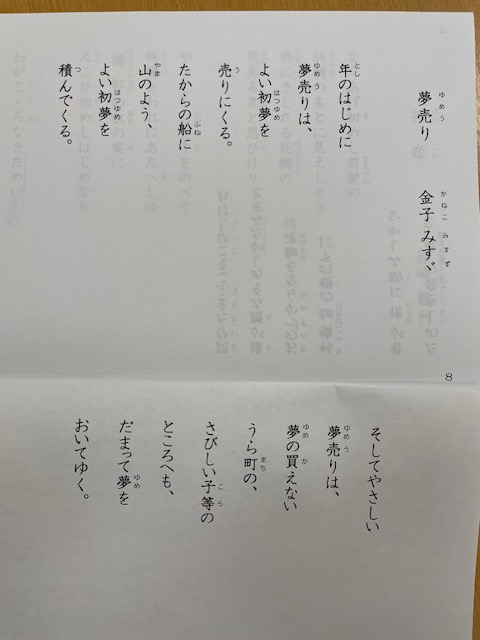 夢売り　金子みすゞ
年のはじめに
夢売りは、
よい初夢を
売りにくる。
たからの船に
山のよう、
よい初夢を
積んでくる。
8
そしてやさしい
夢売りは、
夢の買えない
うら町の、
さびしい子等の
ところへも、
だまって夢を
おいてゆく。